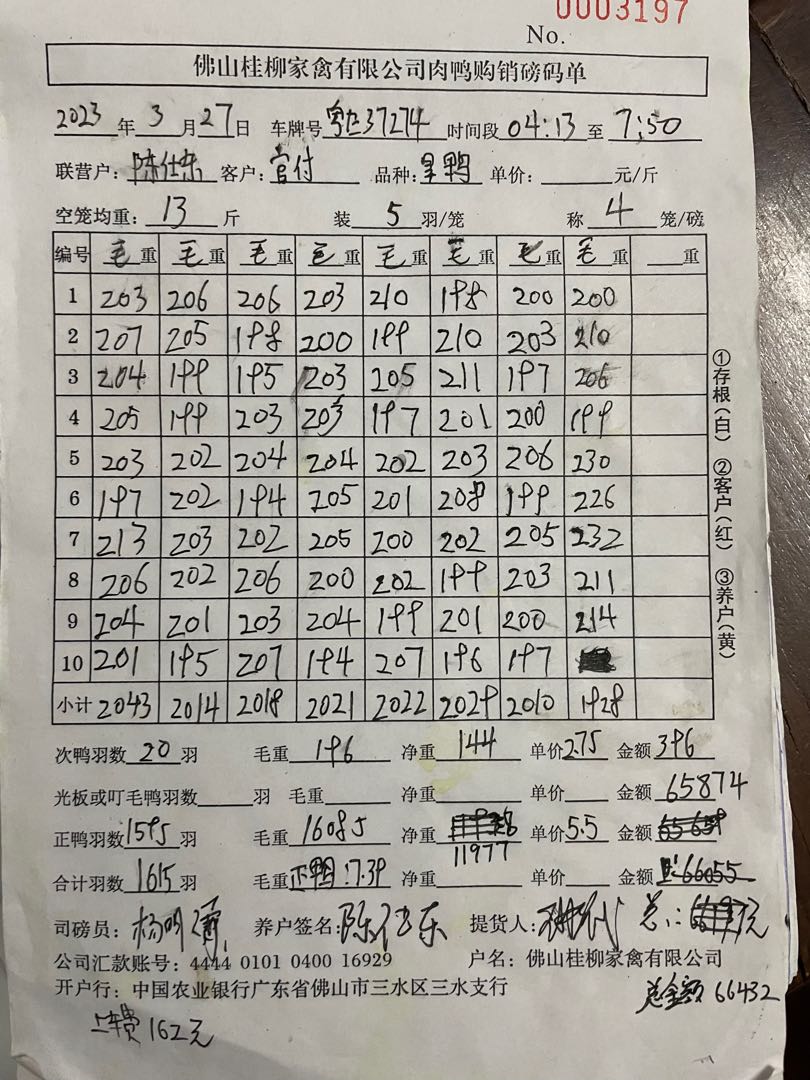 0003197
No.
佛山桂柳家禽有限公司肉鸭购销磅码单
2023年3月27日 车牌号粤E37274时间段04:13至7:50
联营户:陈仕东 客户:官付 品种: 鸭 单价: 元/斤
空笼均重:13斤 装5羽/笼 称4笼/磅
编号 毛重 毛重 毛重 毛重 毛重 毛重 毛重 毛重 重
1 203 206 206 203 210 198 200 200
2 207 205 198 200 199 210 203 210
3 204 199 195 203 205 211 197 206
4 205 199 203 203 197 201 200 199
5 203 202 204 204 202 203 206 230
6 197 202 194 205 201 208 199 226
7 213 203 202 205 200 202 205 232
8 206 202 206 200 202 199 203 211
9 204 201 203 204 199 201 200 214
10 201 195 207 194 207 196 197
小计 2043 2014 2018 2021 2022 2029 2010 1928
①存根(白) ②客户(红) ③养户(黄)
次鸭羽数20羽 毛重196 净重144 单价2.75 金额396
光板或叮毛鸭羽数 羽 毛重 净重 单价 金额65874
正鸭羽数1595羽 毛重16085 净重 单价5.5 金额
11977
合计羽数1615羽 毛重正鸭:7.39 净重 单价 金额
司磅员: 养户签名:陈仕东 提货人:
公司汇款账号:4444 0101 0400 16929 户名:佛山桂柳家禽有限公司
开户行:中国农业银行广东省佛山市三水区三水支行 总金额66432
上车费162元